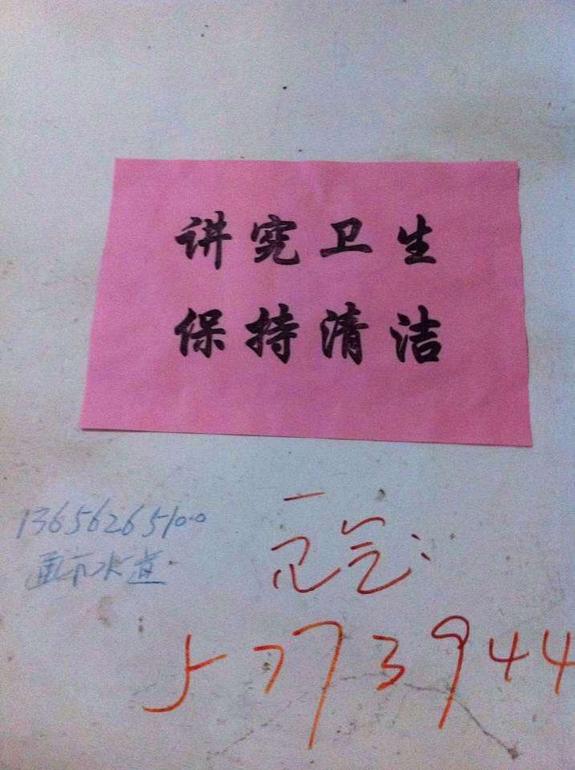 讲究卫生
保持清洁
13656265100
煤气:
5773944